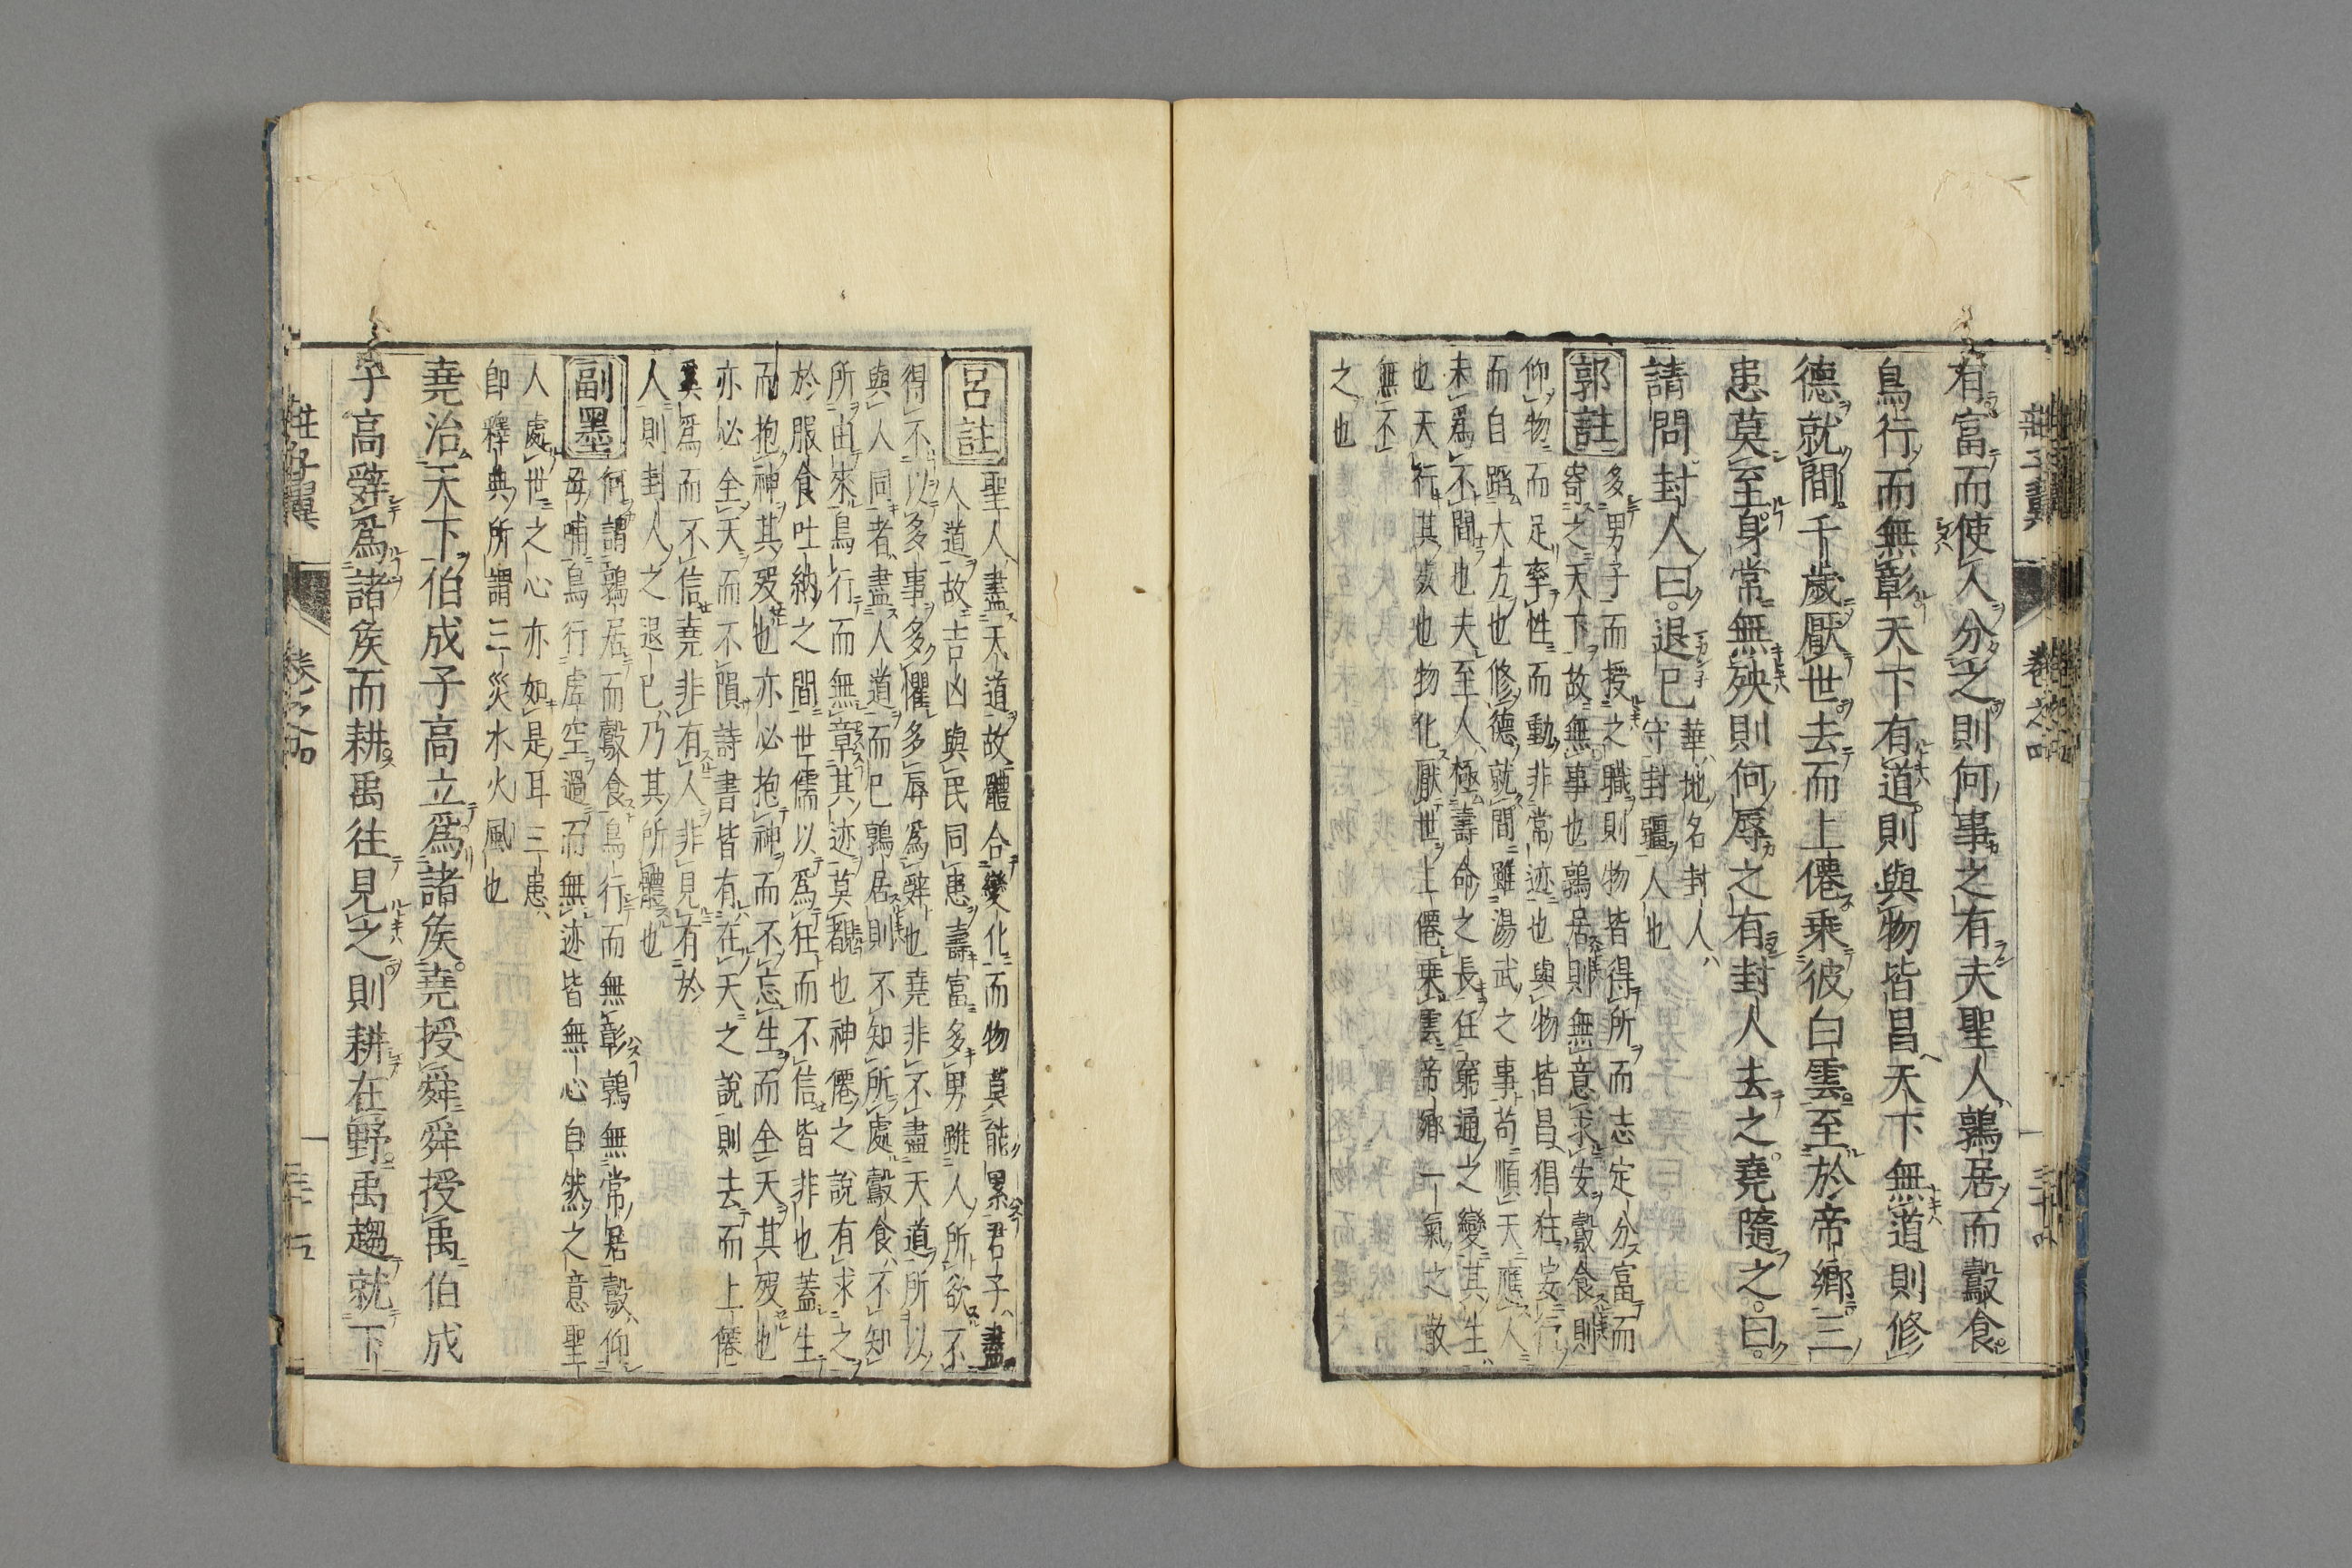 有富而使人分之則何事之有夫聖人鶉居而鷇食
鳥行而無彰天下有道則與物皆昌天下無道則修
德就間千歲厭世去而上僊乘彼白雲至於帝鄉三
患莫至身常無殃則何辱之有封人去之堯隨之曰
請問封人曰退巳
華地名封人
守封疆人也
郭註
多男子而授之職則物皆得所而志定分富而
寄之天下故無事也鶉居則無意求安鷇食則
仰物而足率性而動非常迹也與物皆昌猖狂妄行
而自蹈大方也修德就間雖湯武之事苟順天應人
未爲不間也夫至人極壽命之長任窮通之變其生
也天行其死也物化厭世上僊乘雲帝鄉一氣之散
無不
之也
呂註
聖人盡天道故體合變化而物莫能累君子盡
人道故吉凶與民同患壽富多男雖人所欲不
得不以多事多懼多辱爲辭也堯非不盡天道所以
與人同者盡人道而巳鶉居則不知所處鷇食不知
所由來鳥行而無章其迹莫覩也神僊之說有求之
於服食吐納之間世儒以爲狂而不信皆非也蓋生
而抱神其歿也亦必抱神而不忘生而全天其歿也
亦必全天而不隕詩書皆有在天之說則去而上僊
奚爲而不信堯非有人非見有於
人則封人之退巳乃其所體也
副墨
何謂鶉居而鷇食鳥行而無彰鶉無常居鷇仰
母哺鳥行虛空過而無迹皆無心自然之意聖
人處世之心亦如是耳三患
卽釋典所謂三災水火風也
堯治天下伯成子高立爲諸矦堯授舜舜授禹伯成
子高辭爲諸矦而耕禹往見之則耕在野禹趨就下